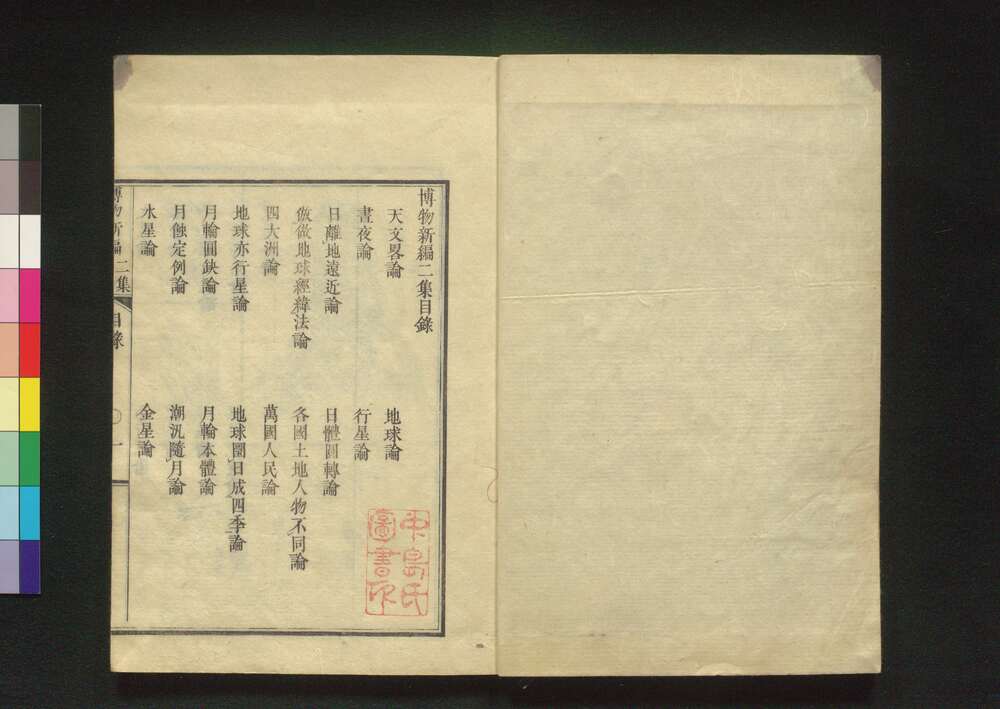 博物新編二集目錄
天文畧論
地球論
晝夜論
行星論
日離地遠近論
日體圓轉論
倣做地球經緯法論
各國土地人物不同論
四大洲論
萬國人民論
地球亦行星論
地球圜日成四季論
月輪圓缺論
月輪本體論
月蝕定例論
潮汛隨月論
水星論
金星論
博物新編二集
目錄
一
中島氏
圖書印